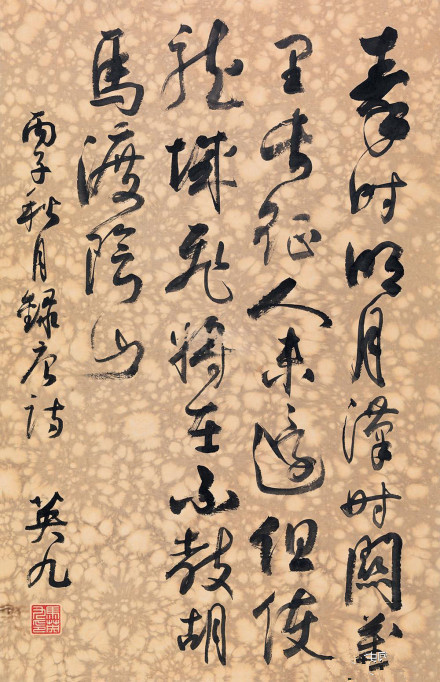 秦時明月漢時關萬
里長征人未還但使
龍城飛將在不教胡
馬渡陰山
丙子秋月錄唐詩 英九